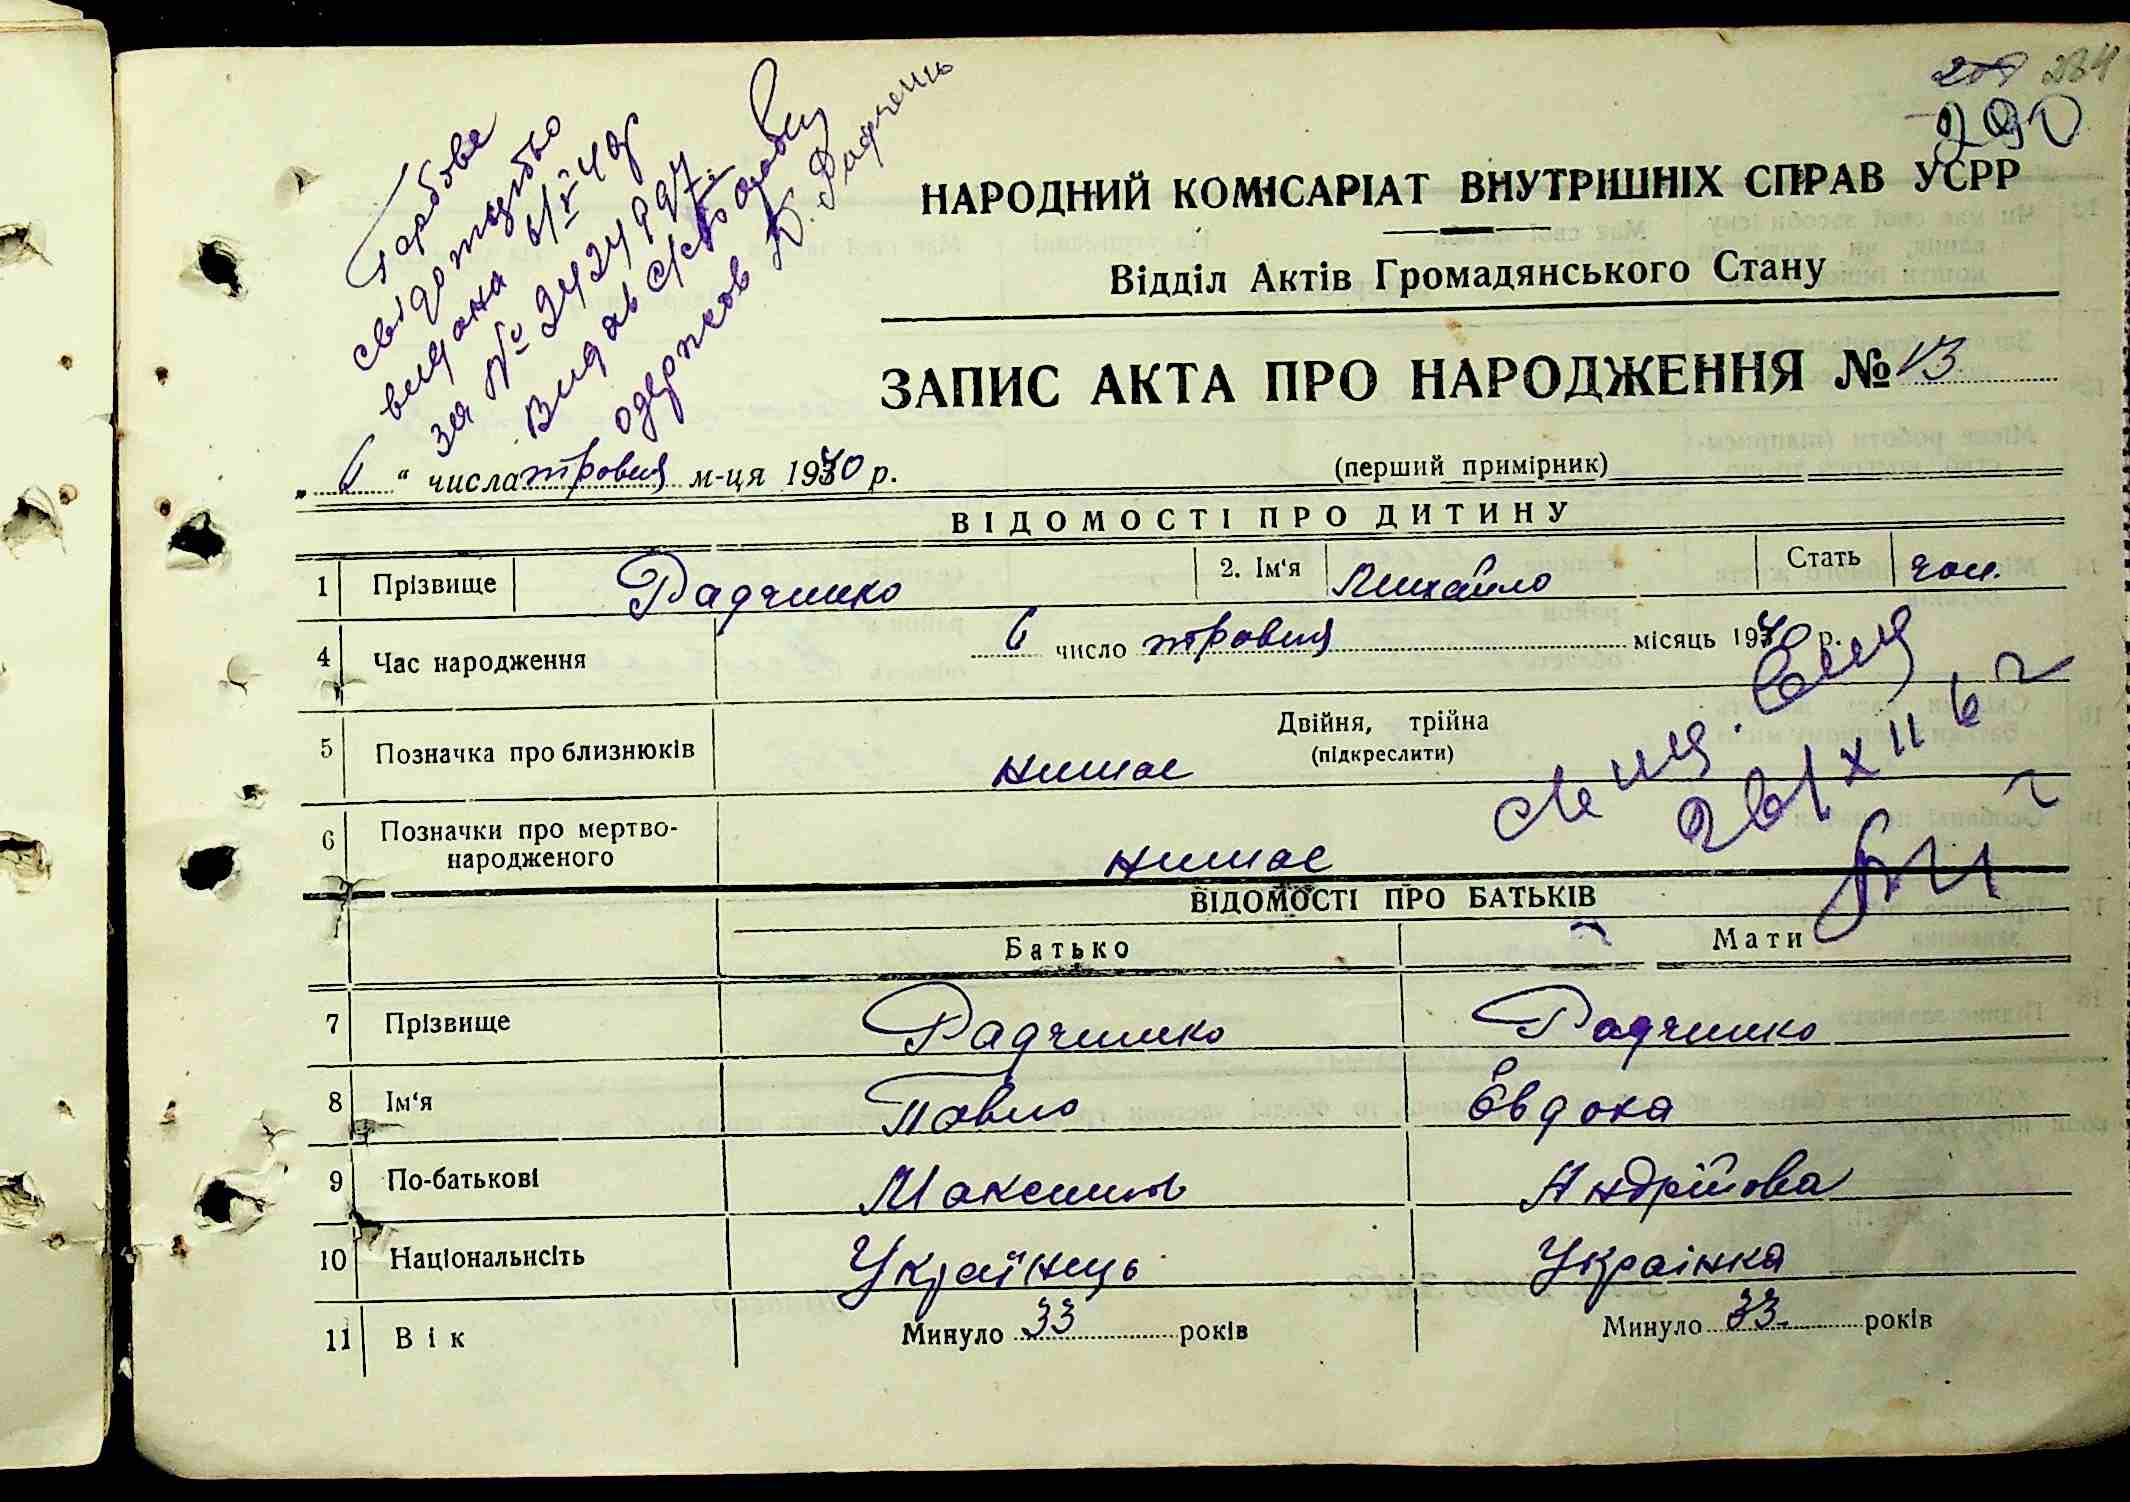 234
290
Гербове
свідоцтво
видана 6/V 40р
за № 2424997.
Видав с/с
одержав Радченко
НАРОДНИЙ КОМІСАРІАТ ВНУТРІШНІХ СПРАВ УСРР
Відділ Актів Громадянського Стану
ЗАПИС АКТА ПРО НАРОДЖЕННЯ № 13
„ 6 “ числа травня м-ця 1940 р.
(перший примірник)
ВІДОМОСТІ ПРО ДИТИНУ
1 Прізвище Радченко 2. Ім‘я Михайло Стать чол.
4 Час народження 6 число травня місяць 1940 р.
5 Позначка про близнюків немає Двійня, трійна
(підкреслити)
6 Позначки про мертво-
народженого немає
ВІДОМОСТІ ПРО БАТЬКІВ
Батько Мати
7 Прізвище Радченко Радченко
8 Ім‘я Павло Євдока
9 По-батькові Максимов Андрійова
10 Національнсіть Українець Українка
11 Вік Минуло 33 років Минуло 33. років